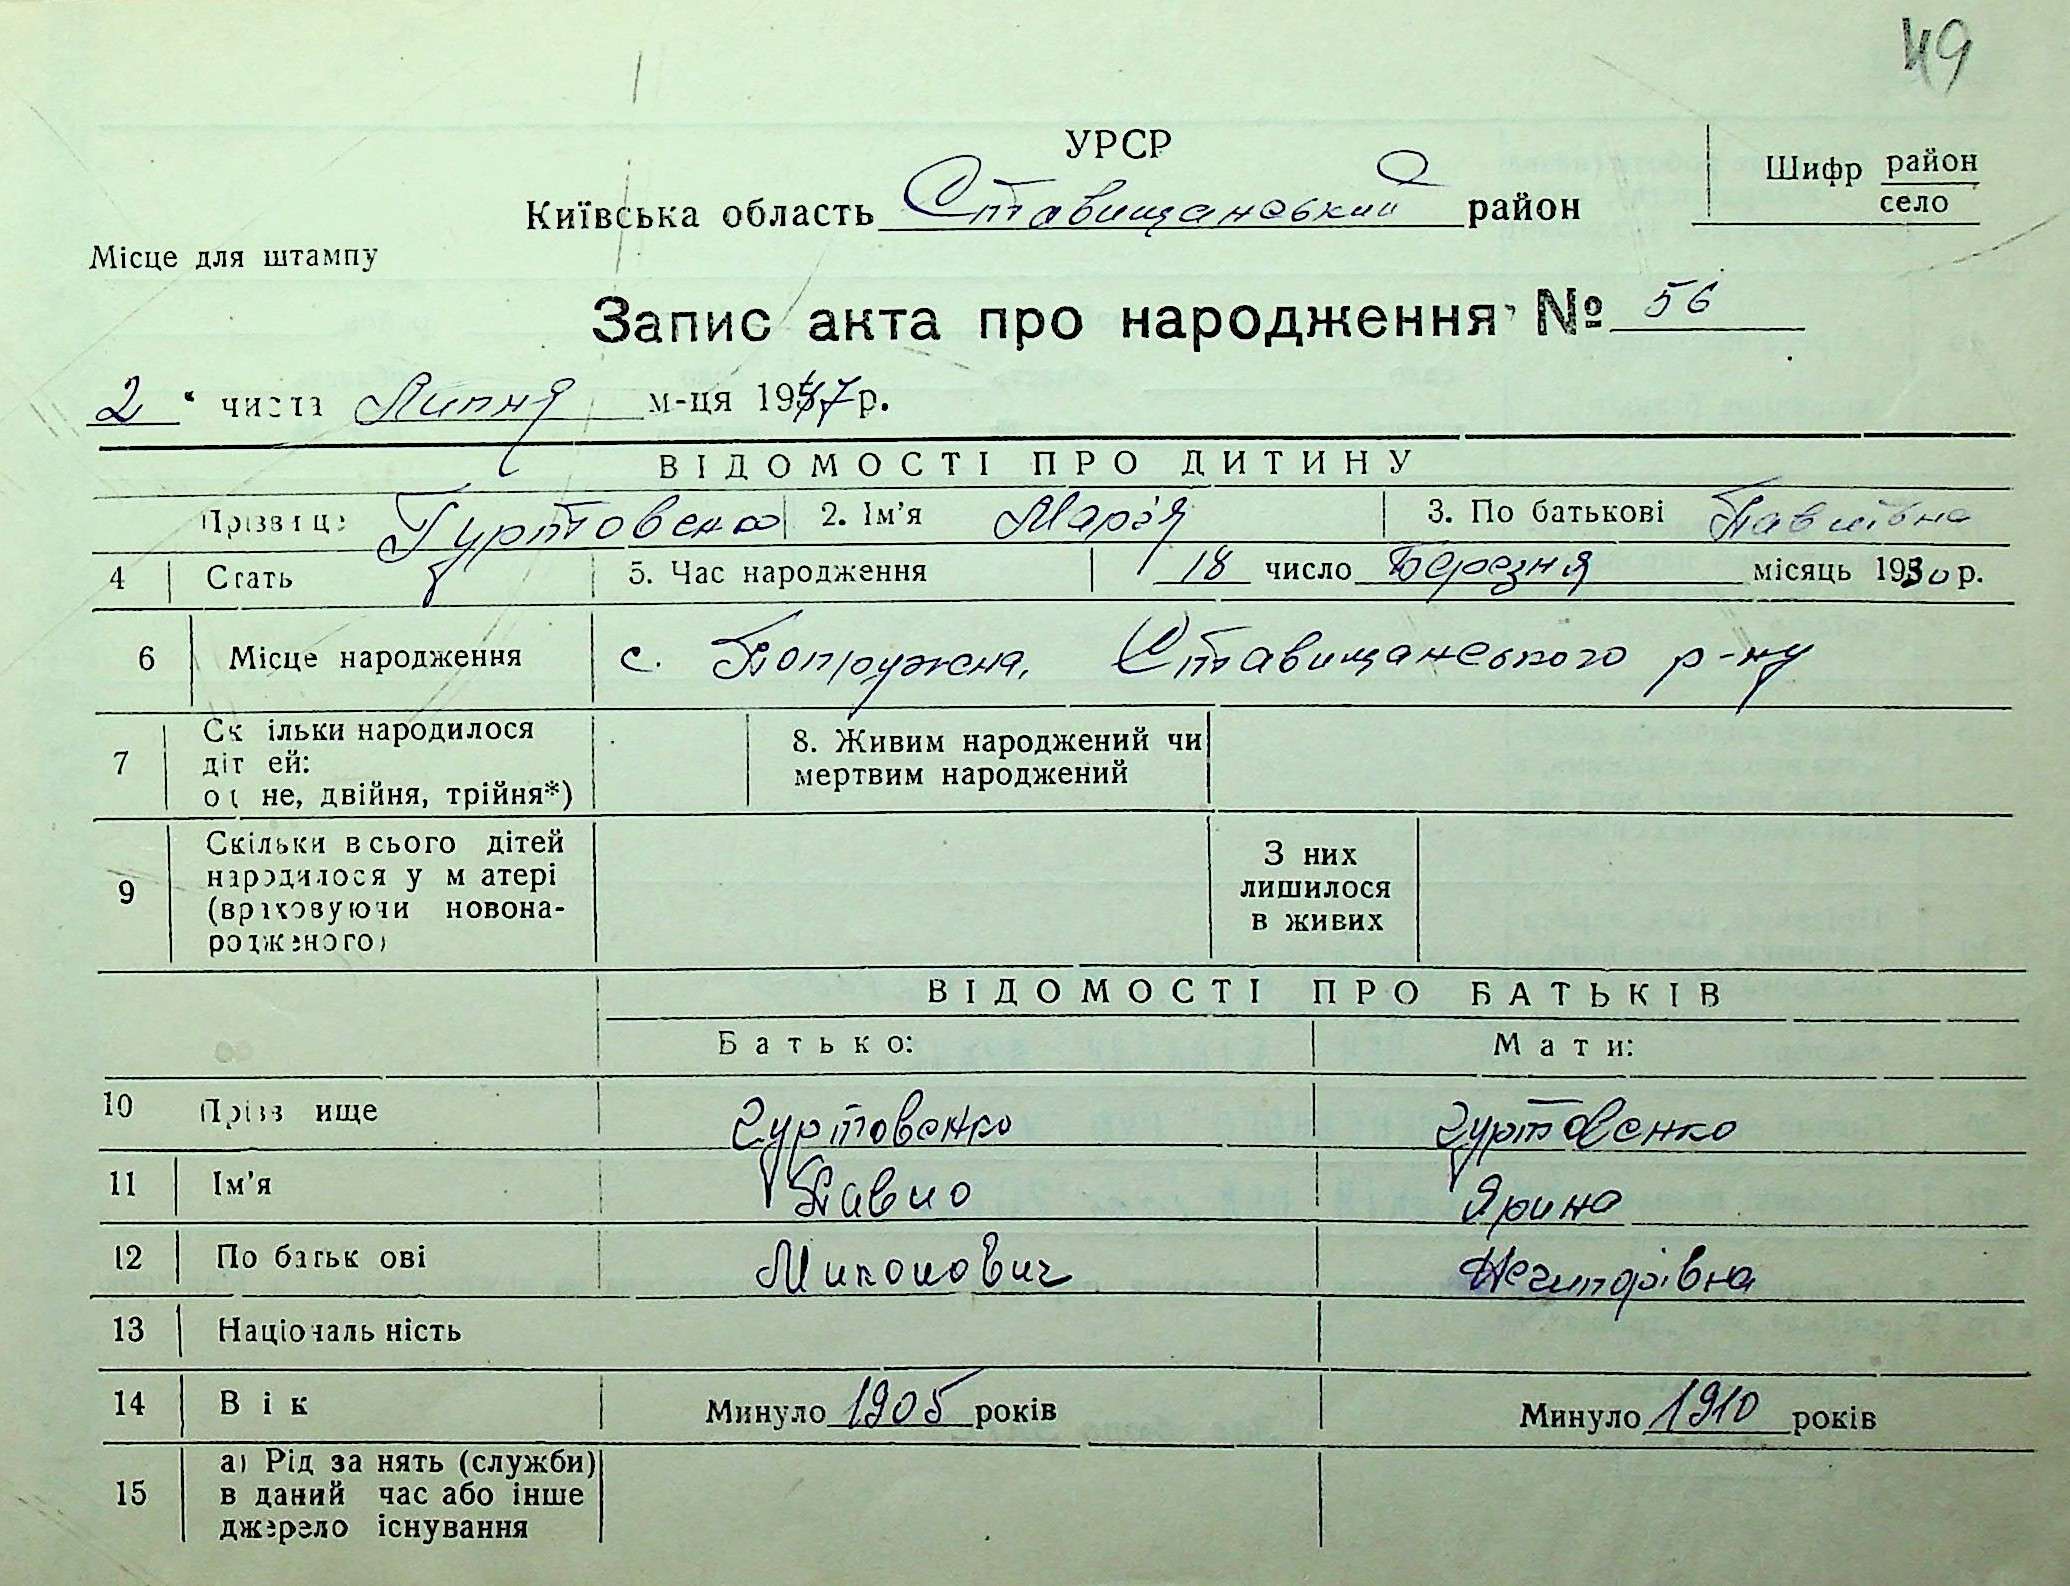 49
УРСР
Київська область Ставищанський район
Шифр район
село
Місце для штампу
Запис акта про народження № 56
2 " числа Липня м-ця 1947 р.
ВІДОМОСТІ ПРО ДИТИНУ
Прізвище Гуртовенко 2. Ім'я Марія 3. По батькові Павлівна
4 Стать 5. Час народження 18 число Березня місяць 1930 р.
6 Місце народження с. Попружна, Ставищанського р-ну
7 Скільки народилося дітей: одне, двійня, трійня*) 8. Живим народжений чи мертвим народжений
9 Скільки всього дітей народилося у матері (враховуючи новонародженого) З них лишилося в живих
ВІДОМОСТІ ПРО БАТЬКІВ
Батько: Мати:
10 Прізвище Гуртовенко Гуртовенко
11 Ім'я Павло Ярина
12 По батькові Миколович Нечипорівна
13 Національність
14 Вік Минуло 1905 років Минуло 1910 років
15 а) Рід занять (служби) в даний час або інше джерело існування